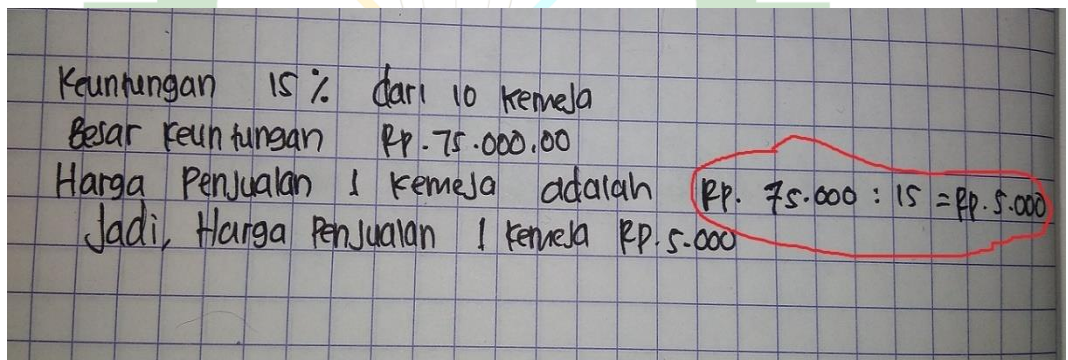 Keuntungan 15% dari 10 kemeja
Besar keuntungan Rp.75.000.00
Harga Penjualan 1 kemeja adalah Rp. 75.000 : 15 = Rp.5.000
Jadi, Harga Penjualan 1 kemeja Rp.5.000